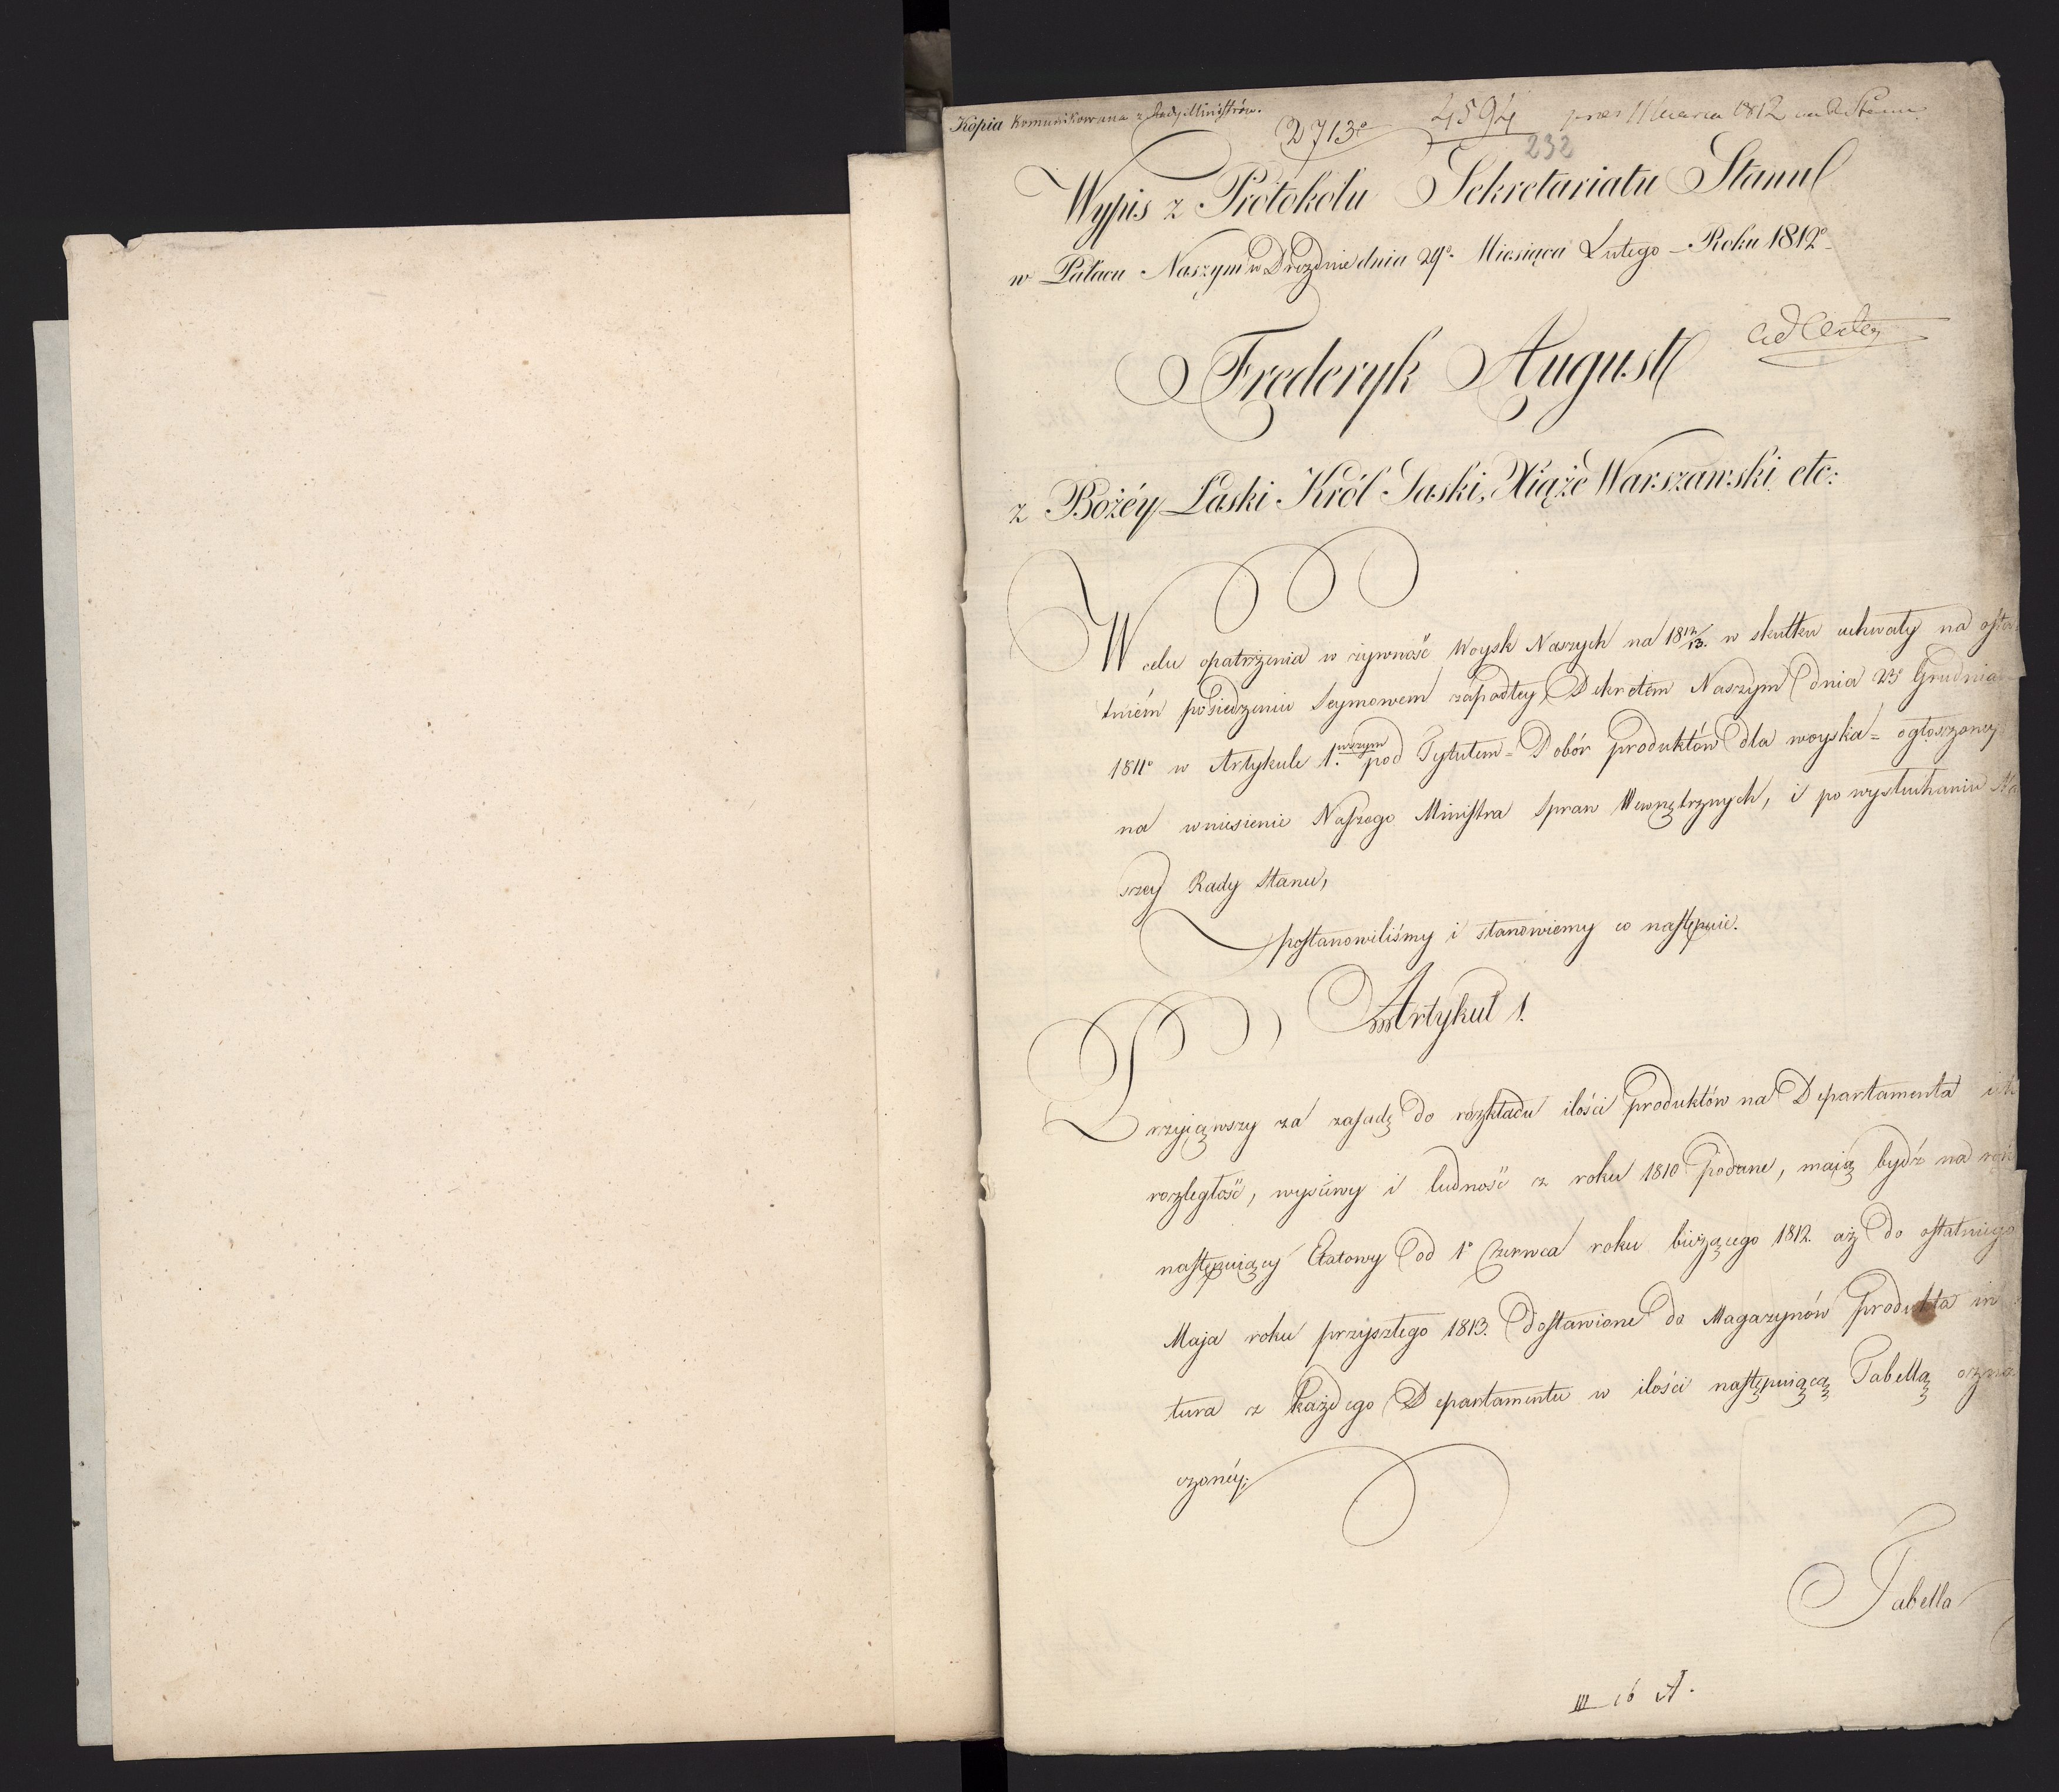 Kópia komunikowana z Rady Ministrów.
2713º 4594 11 Marca 1812
232
Wypis z Protokółu Sekretariatu Stanu
w Pałacu Naszym w Dreznie dnia 29º Miesiąca Lutego Roku 1812º
Frederyk August
z Bożéy Łaski Król Saski, Xiąże Warszawski etc:
W celu opatrzenia w żywność Woysk Naszych na 18 12/13. w skutku uchwały na osta
tniém posiedzeniu Seymowem zapadłey, Dekretem Naszym dnia 23º Grudnia
1811º w Artykule 1.wszym pod Tytułem = Dobór produktów dla woyska = ogłoszoney
na wniesienie Naszego Ministra Spraw Wewnętrznych, i po wysłuchaniu Na
szey Rady Stanu,
postanowiliśmy i stanowiemy co następuie.
Artykuł 1.
Przyiąwszy za zasadę do rozkładu ilości produktów na Departamenta ich
rozległość, wysiewy i ludność z roku 1810 podane, maią bydź na rok
następuiący Etatowy od 1º Czerwca roku bieżącego 1812. aż do ostatniego
Maja roku przyszłego 1813. dostawione do Magazynów produkta in na
tura z każdego Departamentu w ilości następuiącą Tabellą ozna
czonéy:
Tabella
III 16 A.